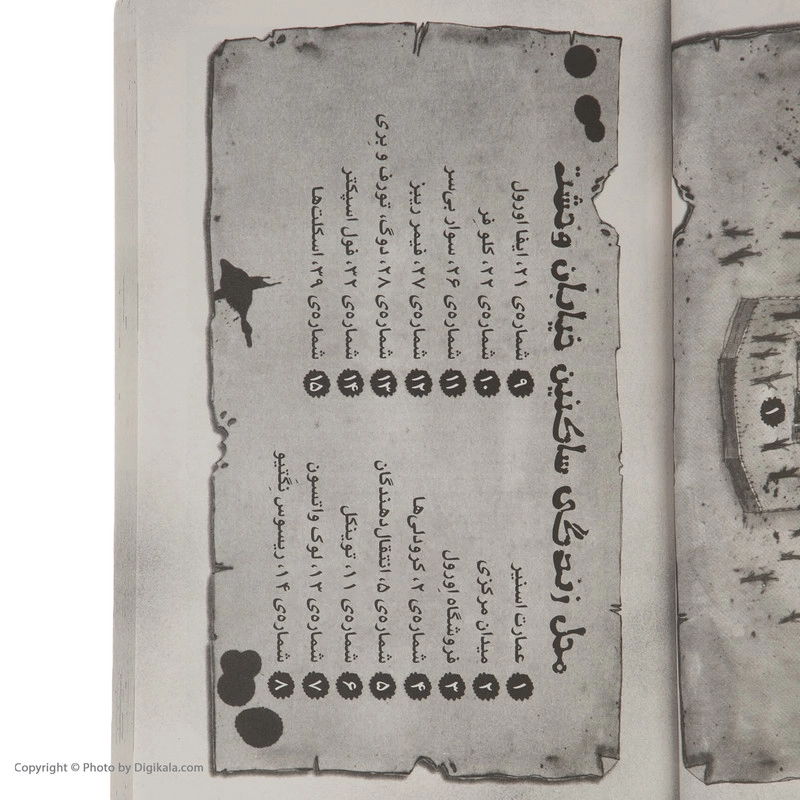 محل زندگی ساکنین خیابان وحشت
۱ عمارت اسنیر
۲ میدان مرکزی
۳ فروشگاه اِورول
۴ شماره‌ی ۲، کرودلی‌ها
۵ شماره‌ی ۵، انتقال‌دهندگان
۶ شماره‌ی ۱۱، توینکل
۷ شماره‌ی ۱۳، لوک واتسون
۸ شماره‌ی ۱۴، ریسوس نِگَتیو
۹ شماره‌ی ۲۱، ایفا اورول
۱۰ شماره‌ی ۲۲، کلو فِر
۱۱ شماره‌ی ۲۶، سوار بی‌سر
۱۲ شماره‌ی ۲۷، فیمر ریبز
۱۳ شماره‌ی ۲۸، دوگ، تورف و بِری
۱۴ شماره‌ی ۳۲، فول اسپکتر
۱۵ شماره‌ی ۳۹، اسکلت‌ها
۱
Copyright © Photo by Digikala.com